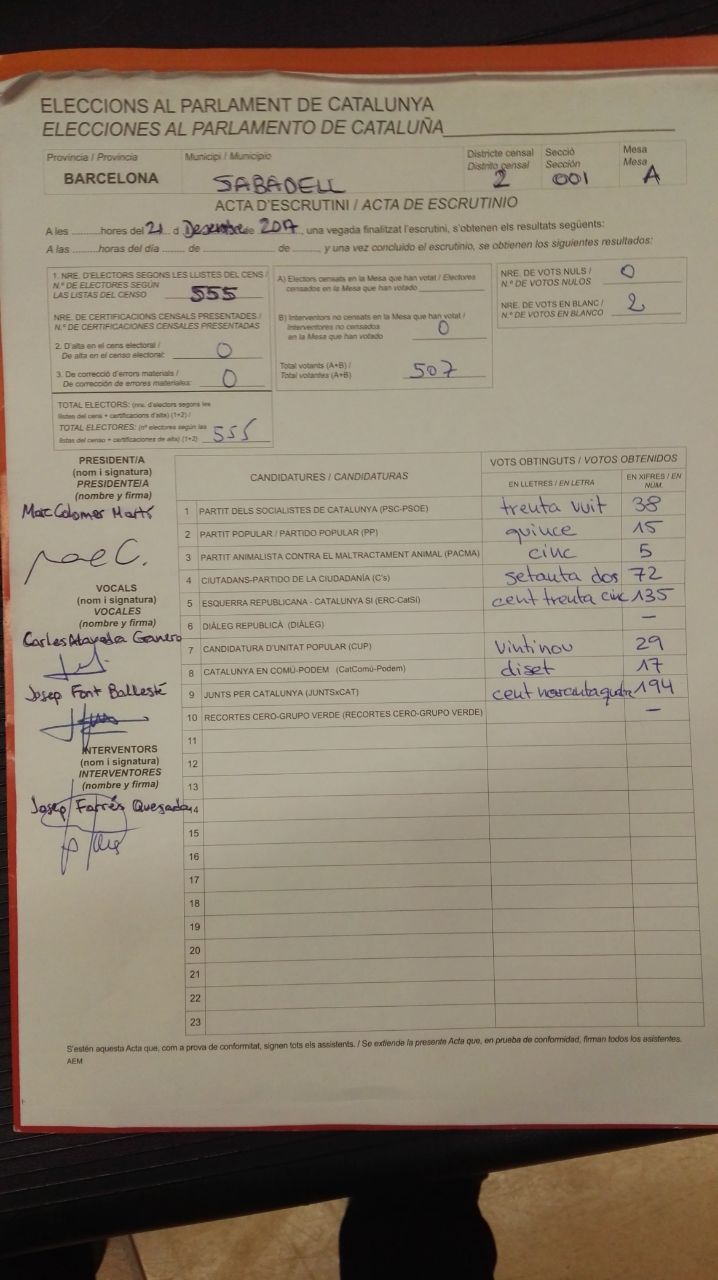 ELECCIONS AL PARLAMENT DE CATALUNYA
ELECCIONES AL PARLAMENTO DE CATALUÑA
Provincia / Provincia
BARCELONA
Municipi / Municipio
SABADELL
Districte censal
Distrito censal
2
Secció
Sección
001
Mesa
Mesa
A
ACTA D'ESCRUTINI / ACTA DE ESCRUTINIO
A les ..........hores del 21 d Desembre de 2017, una vegada finalitzat l'escrutini, s'obtenen els resultats següents:
A las ..........horas del día ........ de ............ de ........, y una vez concluido el escrutinio, se obtienen los siguientes resultados:
1. NRE. D'ELECTORS SEGONS LES LLISTES DEL CENS /
N.º DE ELECTORES SEGÚN
LAS LISTAS DEL CENSO 555
NRE. DE CERTIFICACIONS CENSALS PRESENTADES /
N.º DE CERTIFICACIONES CENSALES PRESENTADAS
2. D'alta en el cens electoral /
De alta en el censo electoral: 0
3. De correcció d'errors materials /
De corrección de errores materiales: 0
TOTAL ELECTORS: (nre. d'electors segons les
llistes del cens + certificacions d'alta) (1+2) /
TOTAL ELECTORES: (nº electores según las
listas del censo + certificaciones de alta) (1+2) 555
A) Electors censats en la Mesa que han votat / Electores
censados en la Mesa que han votado
B) Interventors no censats en la Mesa que han votat /
Interventores no censados
en la Mesa que han votado 0
Total votants (A+B) /
Total votantes (A+B) 507
NRE. DE VOTS NULS /
N.º DE VOTOS NULOS 0
NRE. DE VOTS EN BLANC /
N.º DE VOTOS EN BLANCO 2
PRESIDENT/A
(nom i signatura)
PRESIDENTE/A
(nombre y firma)
Marc Colomer Martí
VOCALS
(nom i signatura)
VOCALES
(nombre y firma)
Carles
Josep Font Ballesté
INTERVENTORS
(nom i signatura)
INTERVENTORES
(nombre y firma)
Josep Farrés Quesada
CANDIDATURES / CANDIDATURAS
VOTS OBTINGUTS / VOTOS OBTENIDOS
EN LLETRES / EN LETRA
EN XIFRES / EN NUM.
1 PARTIT DELS SOCIALISTES DE CATALUNYA (PSC-PSOE) trenta vuit 38
2 PARTIT POPULAR / PARTIDO POPULAR (PP) quince 15
3 PARTIT ANIMALISTA CONTRA EL MALTRACTAMENT ANIMAL (PACMA) cinc 5
4 CIUTADANS-PARTIDO DE LA CIUDADANÍA (C's) setanta dos 72
5 ESQUERRA REPUBLICANA - CATALUNYA SI (ERC-CatSí) cent trenta cinc 135
6 DIÀLEG REPUBLICÀ (DIÀLEG) –
7 CANDIDATURA D'UNITAT POPULAR (CUP) vintinou 29
8 CATALUNYA EN COMÚ-PODEM (CatComú-Podem) diset 17
9 JUNTS PER CATALUNYA (JUNTSxCAT) cent 194
10 RECORTES CERO-GRUPO VERDE (RECORTES CERO-GRUPO VERDE) –
11
12
13
14
15
16
17
18
19
20
21
22
23
S'estén aquesta Acta que, com a prova de conformitat, signen tots els assistents. / Se extiende la presente Acta que, en prueba de conformidad, firman todos los asistentes.
AEM